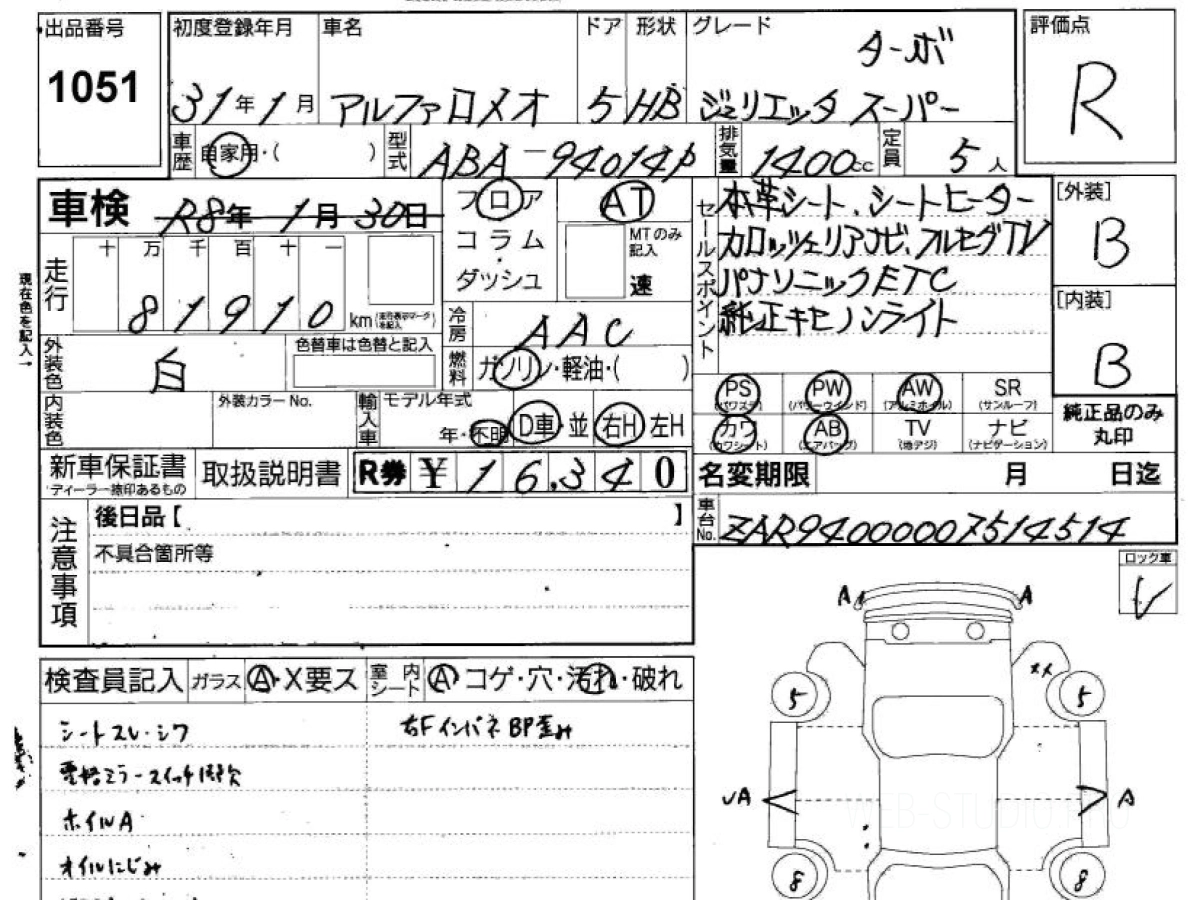 出品番号 初度登録年月 車名 ドア 形状 グレード 評価点
1051 31年1月 アルファロメオ 5 HB ターボ R
ジュリエッタ スーパー
車歴 自家用・( ) 型式 ABA-94014P 排気量 1400cc 定員 5人
車検 R8年 1月 30日 フロア AT セールスポイント 本革シート、シートヒーター [外装]
コラム MTのみ記入 カロッツェリアナビ、フルセグTV B
ダッシュ 速 パナソニックETC
純正キセノンライト [内装]
B
現在色を記入→
走行 十 万 千 百 十 一
81910 km (走行表示マークを記入)
冷房 AAC
外装色 白 色替車は色替と記入 燃料 ガソリン・軽油・( )
内装色 外装カラーNo. 輸入車 モデル年式
年・不明 D車・並 右H 左H
PS PW AW SR
(パワステ) (パワーウインド) (アルミホイル) (サンルーフ)
カワ AB TV ナビ
(カワシート) (エアバッグ) (地デジ) (ナビゲーション)
純正品のみ
丸印
新車保証書 取扱説明書 R券 ¥16.340 名変期限 月 日迄
ディーラー捺印あるもの
車台No. ZAR94000007514514
注意事項 後日品【 】
不具合箇所等
ロック車
レ
A A
検査員記入 ガラス A・X要ス 室内シート A コゲ・穴・汚れ・破れ
××
5 5
シートスレ・シワ 右FインパネBP歪み
電格ミラースイッチ
ホイルA
オイルにじみ
A A
8 8
WEB-STUDIO.PRO